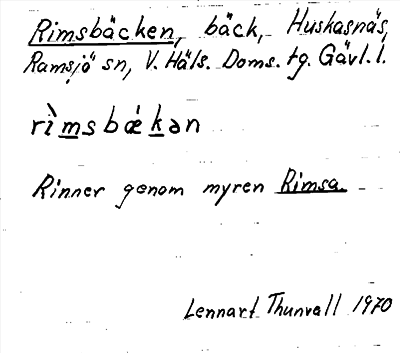 Rimsbäcken, bäck, Huskasnäs,
Ramsjö sn, V. Häls. Doms. tg. Gävl. l.
rìmsbǽkən
Rinner genom myren Rimsa
Lennart Thunvall 1970